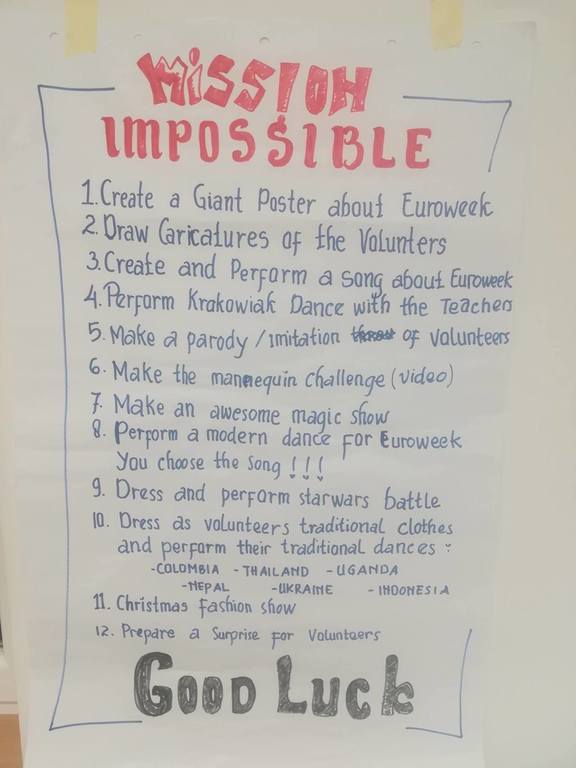 MiSSION
IMPOSSIBLE
1. Create a Giant Poster about Euroweek
2. Draw Caricatures of the Volunters
3. Create and Perform a song about Euroweek
4. Perform Krakowiak Dance with the Teachers
5. Make a parody / imitation of volunteers
6. Make the mannequin challenge (video)
7. Make an awesome magic show
8. Perform a modern dance for Euroweek
You choose the song !!!
9. Dress and perform starwars battle
10. Dress as volunteers traditional clothes
and perform their traditional dances :
-COLOMBIA -THAILAND -UGANDA
-NEPAL -UKRAINE -INDONESIA
11. Christmas fashion show
12. Prepare a Surprise for Volunteers
GOOD LUCK